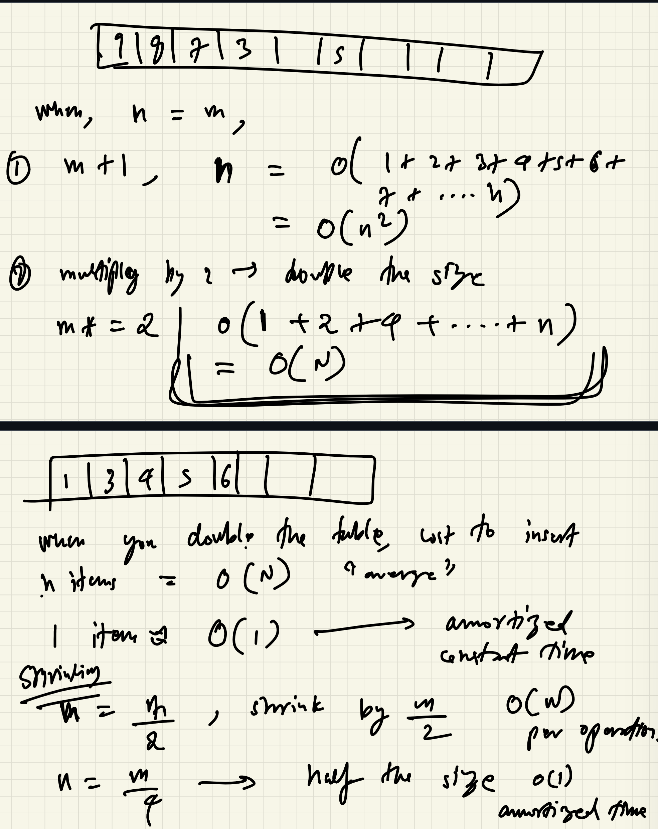 9 | 8 | 7 | 3 | | 5 | | | |
when, n = m,
① m+1, n = O( 1+ 2+ 3+ 4+5+6+
7 + .... n)
= O(n²)
② multiply by 2 → double the size
m* = 2 | O(1 + 2 + 4 + ..... + n)
= O(N)
1 | 3 | 4 | 5 | 6 | | |
when you double the table, cost to insert
n items = O(N) "average"
1 item = O(1) → amortized
constant time
Shrinking
m = n/2 , shrink by m/2 O(N)
per operation.
n = m/4 → half the size O(1)
amortized time